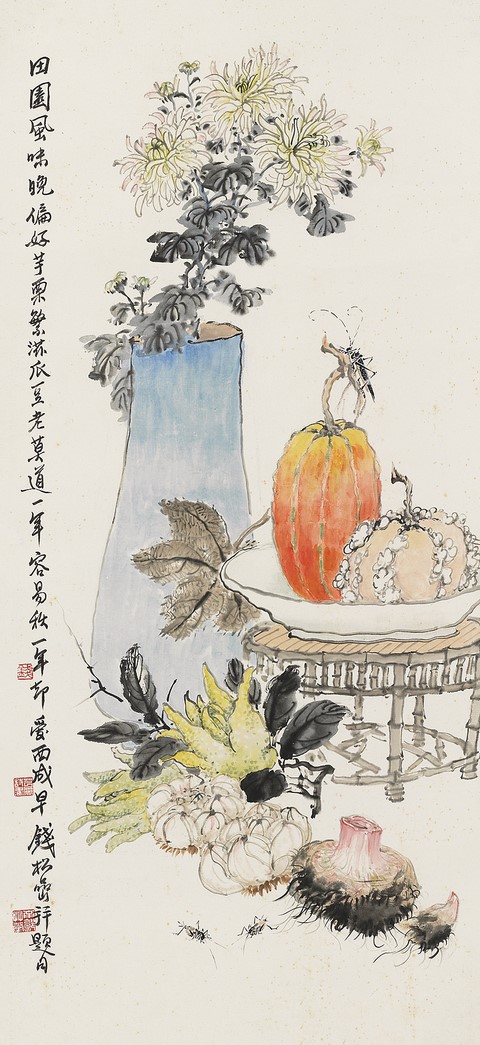 田園風味晚偏好芋栗繁滋瓜豆老莫道一年容易秋一年却愛西成早錢松嵒并題句